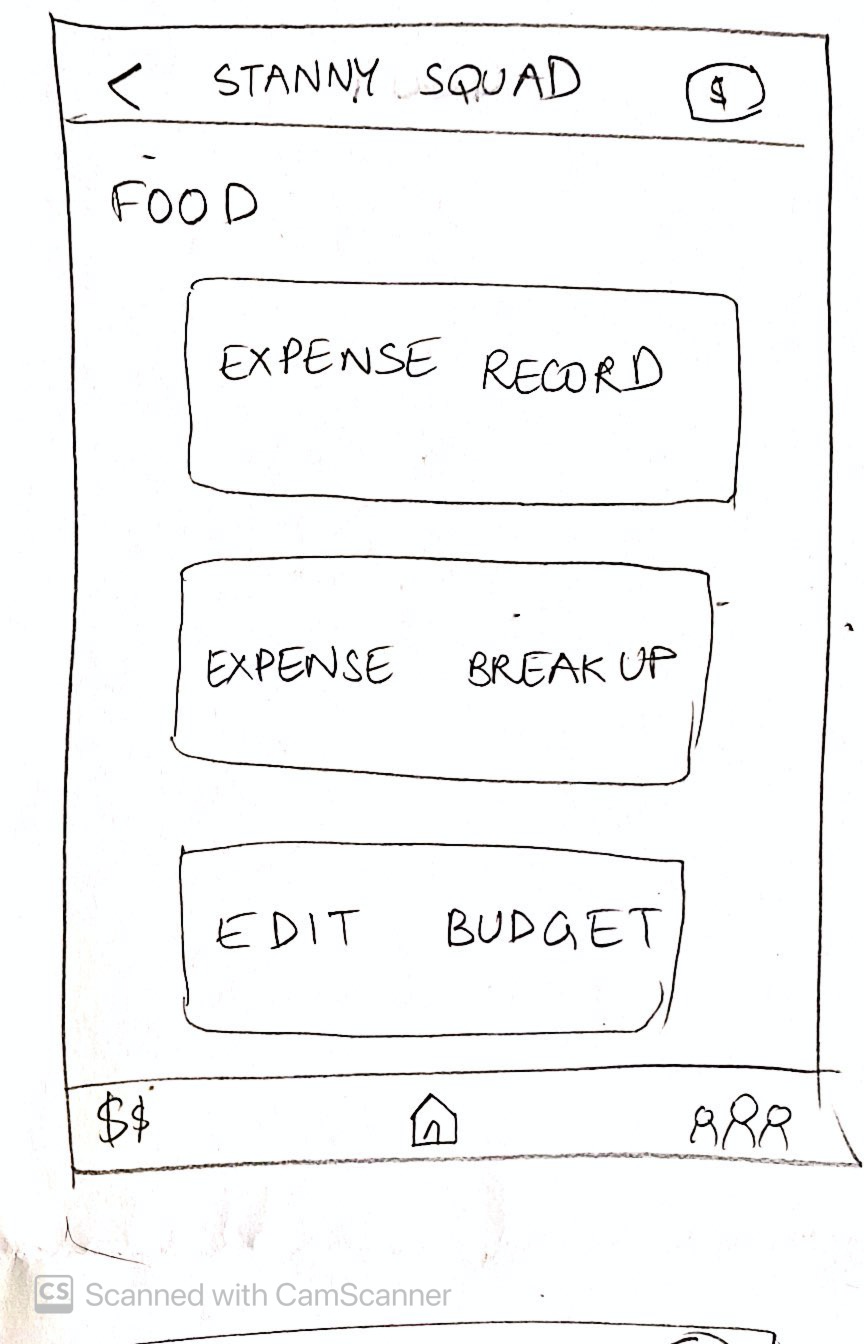 < STANNY SQUAD $
FOOD
EXPENSE RECORD
EXPENSE BREAKUP
EDIT BUDGET
$$
CS Scanned with CamScanner